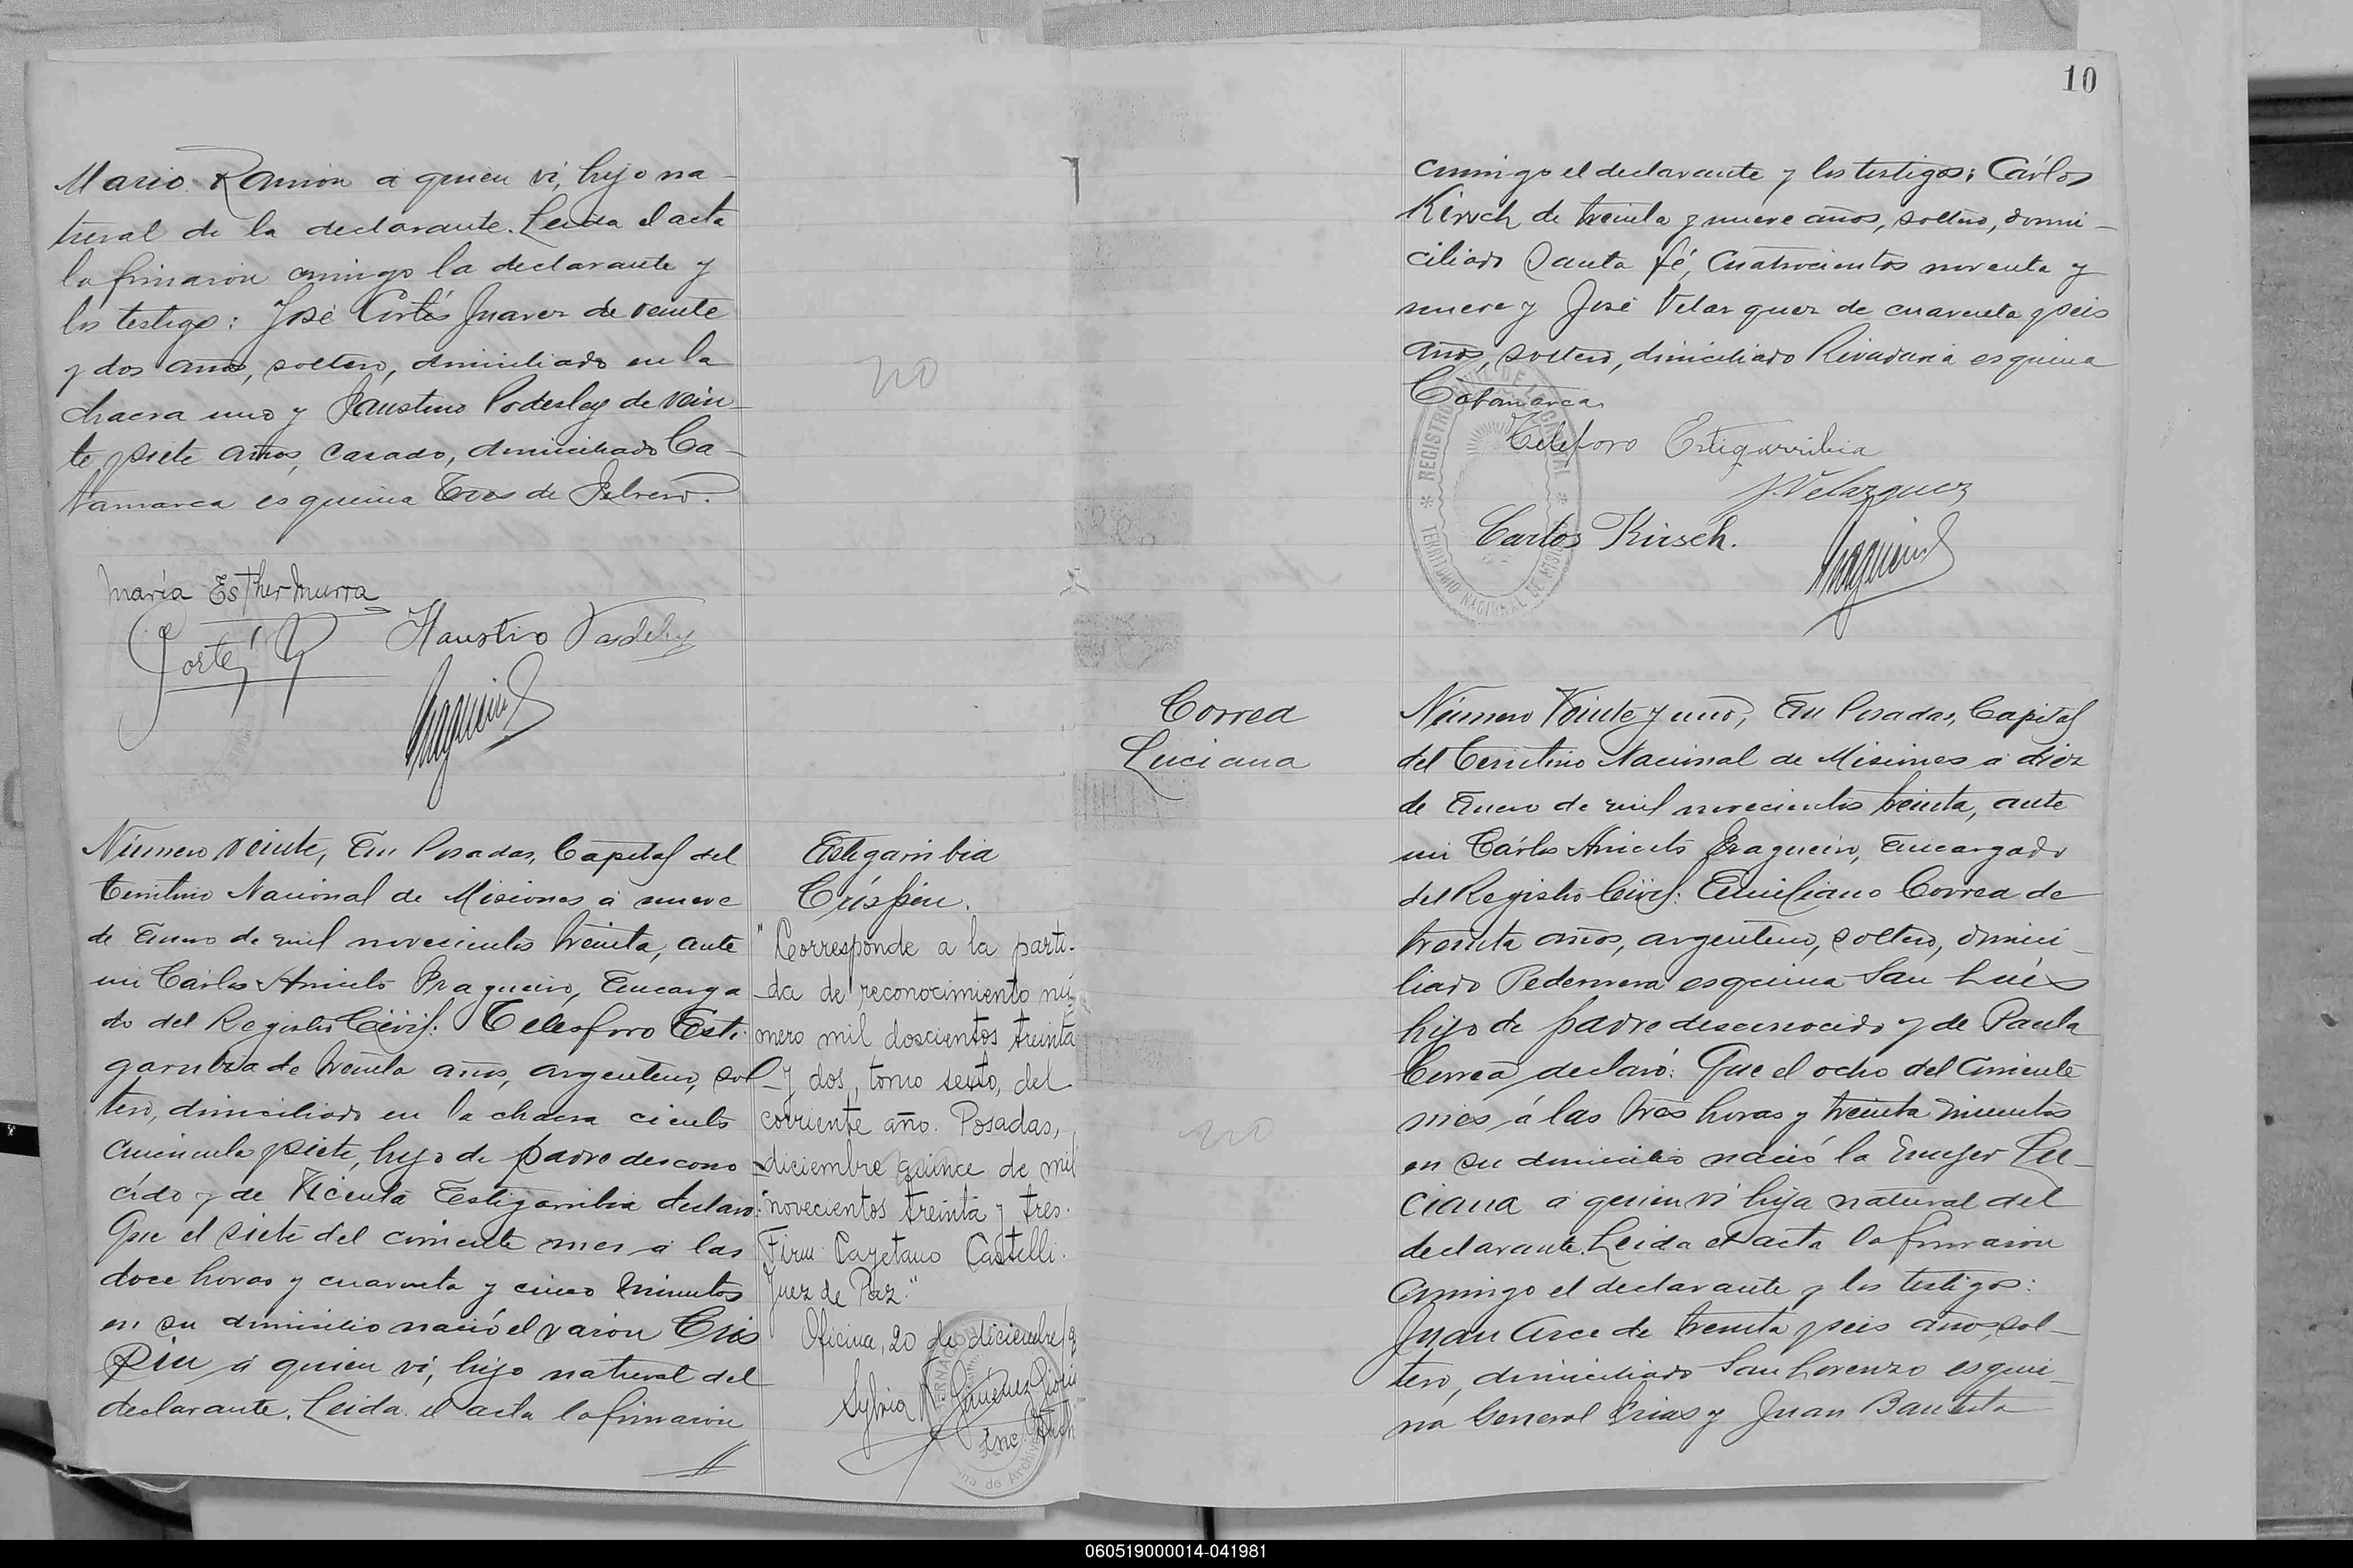 Mario Ramón a quien vi, hijo na-
tural de la declarante. Leida el acta
la firmaron conmigo la declarante y
los testigos: José Cortés Juarez de veinte
y dos años, soltero, domiciliado en la
chacra uno y Faustino Poderley de vein-
te y siete años, casado, domiciliado Ca-
tamarca esquina Tres de Febrero.
María Esther Murra
Cortés
Faustino
Número veinte, En Posadas, Capital del
Territorio Nacional de Misiones á nueve
de Enero de mil novecientos treinta, ante
mi Cárlos Aniceto Fragueiro, Encarga-
do del Registro Civil: Telesforo Esti-
garribia de treinta años, argentino, sol-
tero, domiciliado en la chacra ciento
cincuenta y siete, hijo de padre descono-
cido y de Vicenta Estigarribia declaró:
Que el siete del corriente mes a las
doce horas y cuarenta y cinco minutos
en su domicilio nació el varon Cris
pin á quien vi, hijo natural del
declarante. Leida el acta la firmaron
Estigarribia
Críspin.
"Corresponde a la parti-
da de reconocimiento nú-
mero mil doscientos treinta
y dos, tomo sexto, del
corriente año. Posadas,
diciembre quince de mil
novecientos treinta y tres.
Firm: Cayetano Castelli.
Juez de Paz."
Oficina, 20 de diciembre
Sylvia M. Gimenez
Enc. Arch
no
10
conmigo el declarante y los testigos: Cárlos
Kirsch de treinta y nueve años, soltero, domi-
ciliado Santa fé, Cuatrocientos noventa y
nueve y José Velazquez de cuarenta y seis
años, soltero, domiciliado Rivadavia esquina
Catamarca.
REGISTRO CIVIL DE LA CAPITAL
TERRITORIO NACIONAL DE MISIONES
Telesforo Estigarribia
J. Velazquez
Carlos Kirsch.
Correa
Luciana
no
Número Veinte y uno, En Posadas, Capital
del Territorio Nacional de Misiones á diez
de Enero de mil novecientos treinta, ante
mi Cárlos Aniceto Fragueiro, Encargado
del Registro Civil: Emiliano Correa de
treinta años, argentino, soltero, domici-
liado Pedernera esquina San Luis
hijo de padre desconocido y de Paula
Correa declaró: Que el ocho del corriente
mes á las tres horas y treinta minutos
en su domicilio nació la mujer Lu-
ciana a quien vi hija natural del
declarante. Leida el acta la firmaron
conmigo el declarante y los testigos:
Juan Arce de treinta y seis años, sol-
tero, domiciliado San Lorenzo esqui-
na General Frias y Juan Bautista
060519000014-041981